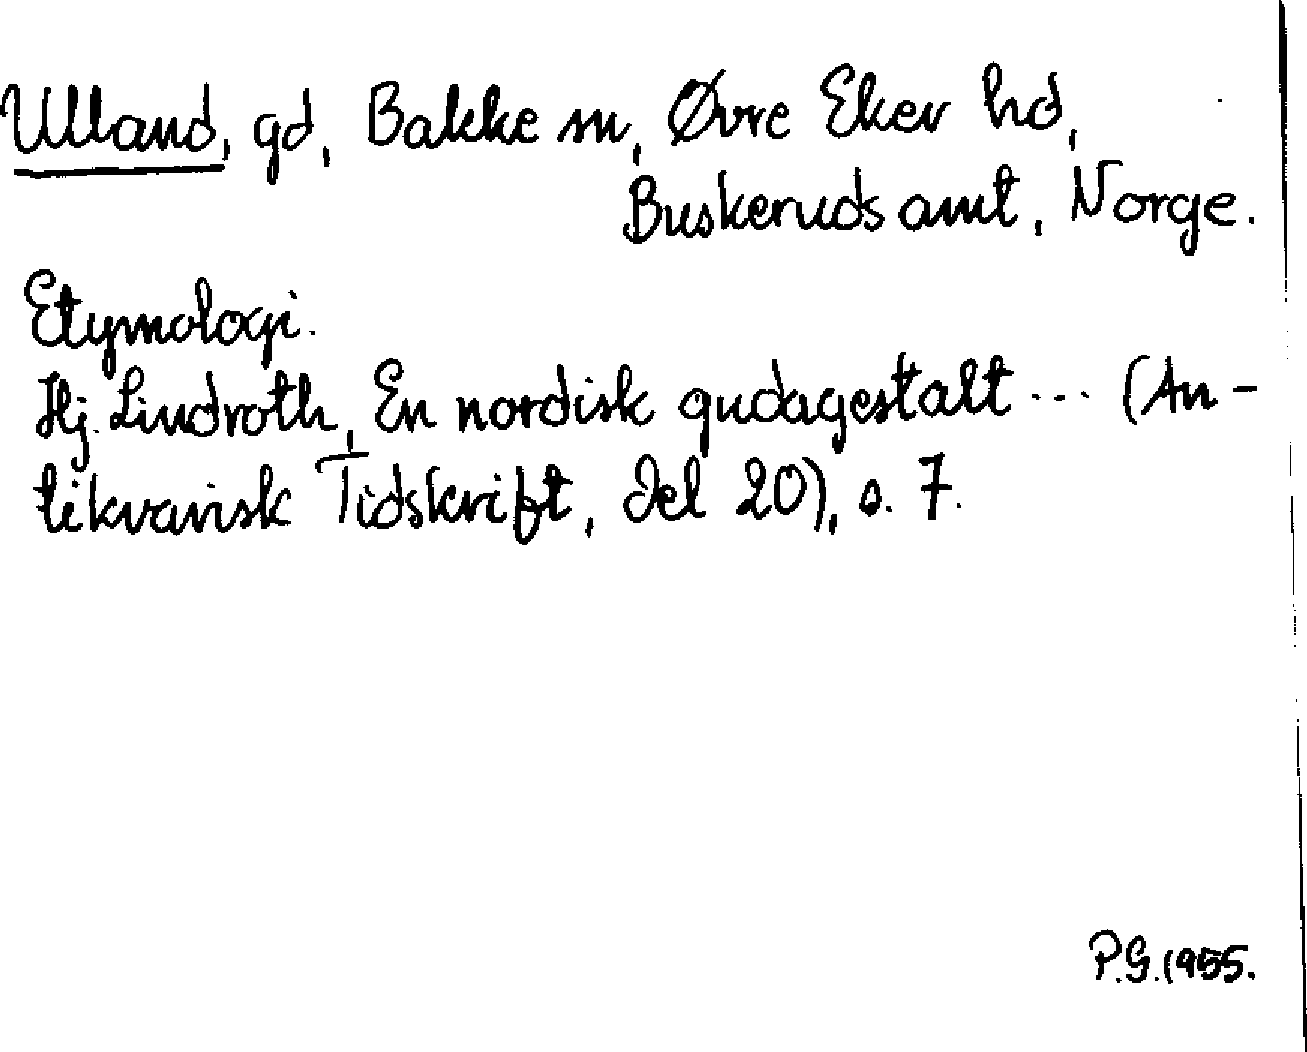 Ulland, gd, Bakke sn, Øvre Eker hd,
Buskeruds amt, Norge.
Etymologi.
Hj. Lindroth, En nordisk gudagestalt ... (An-
tikvarisk Tidskrift, del 20), s. 7.
P.G. 1955.